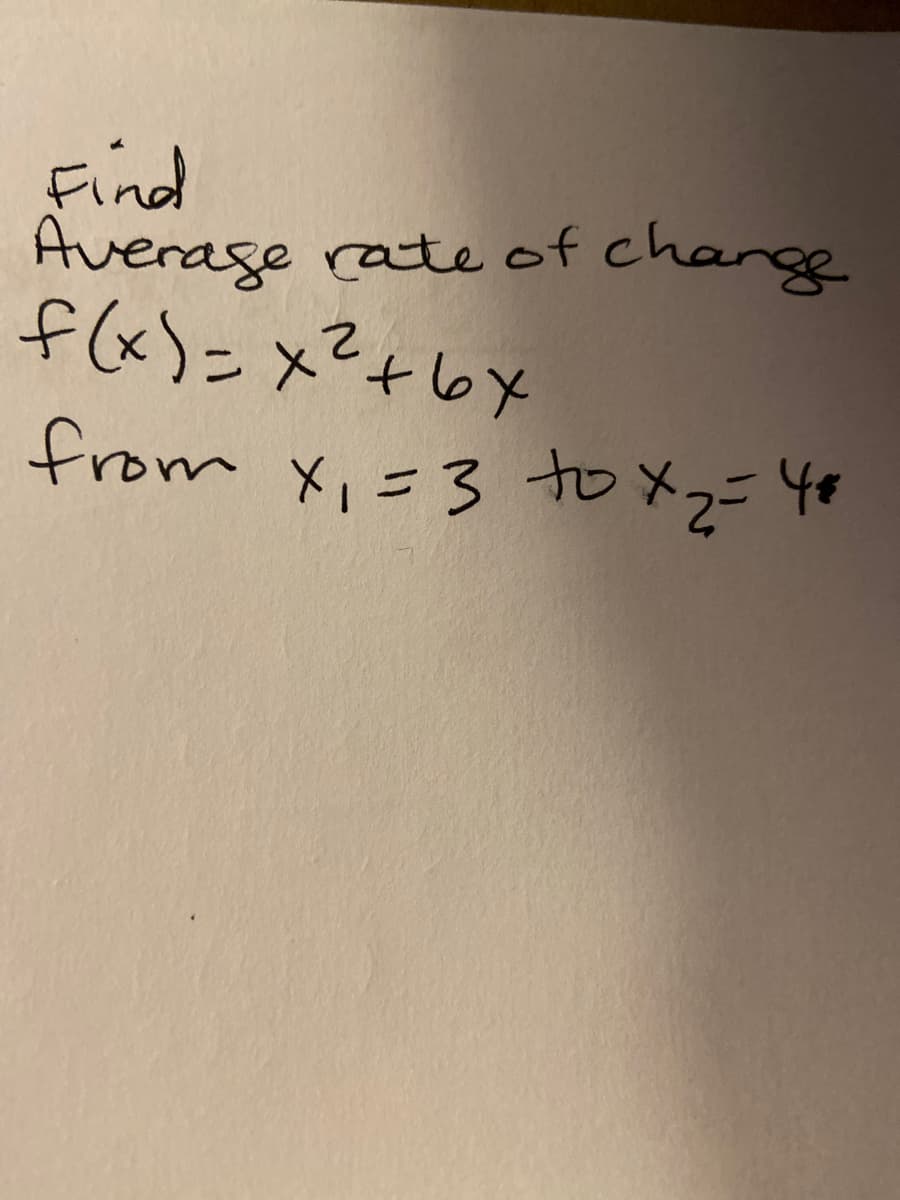 Find
Average rate of change
f(x) = x²+6x
from x₁ = 3 to x₂ = 4.